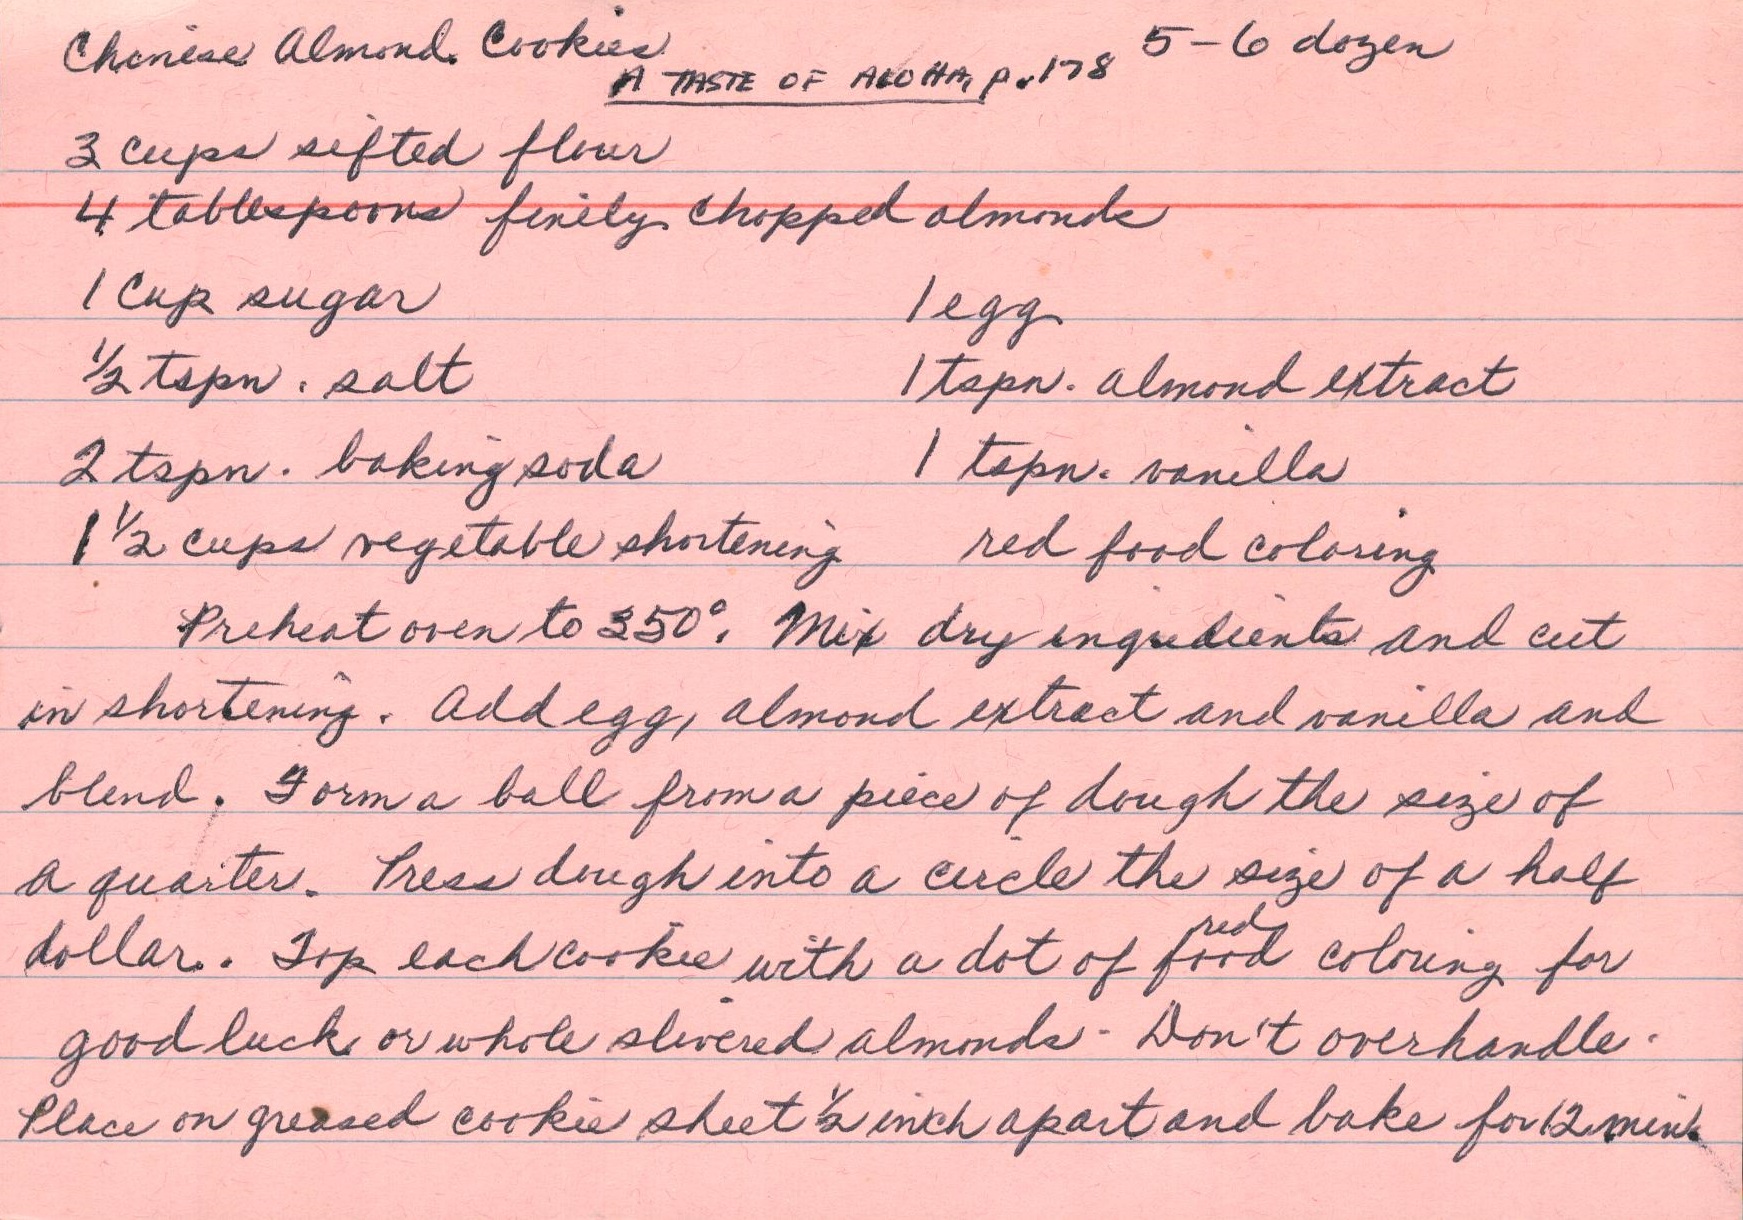 Chinese Almond Cookies 5-6 dozen
A TASTE OF ALOHA, p. 178
3 cups sifted flour
4 tablespoons finely chopped almonds
1 Cup sugar 1 egg
1/2 tspn. salt 1 tspn. almond extract
2 tspn. baking soda 1 tspn. vanilla
1 1/2 cups vegetable shortening red food coloring
Preheat oven to 350°. Mix dry ingredients and cut
in shortening. Add egg, almond extract and vanilla and
blend. Form a ball from a piece of dough the size of
a quarter. Press dough into a circle the size of a half
dollar. Top each cookie with a dot of red food coloring for
good luck or whole slivered almonds - Don't overhandle.
Place on greased cookie sheet 1/2 inch apart and bake for 12 min.